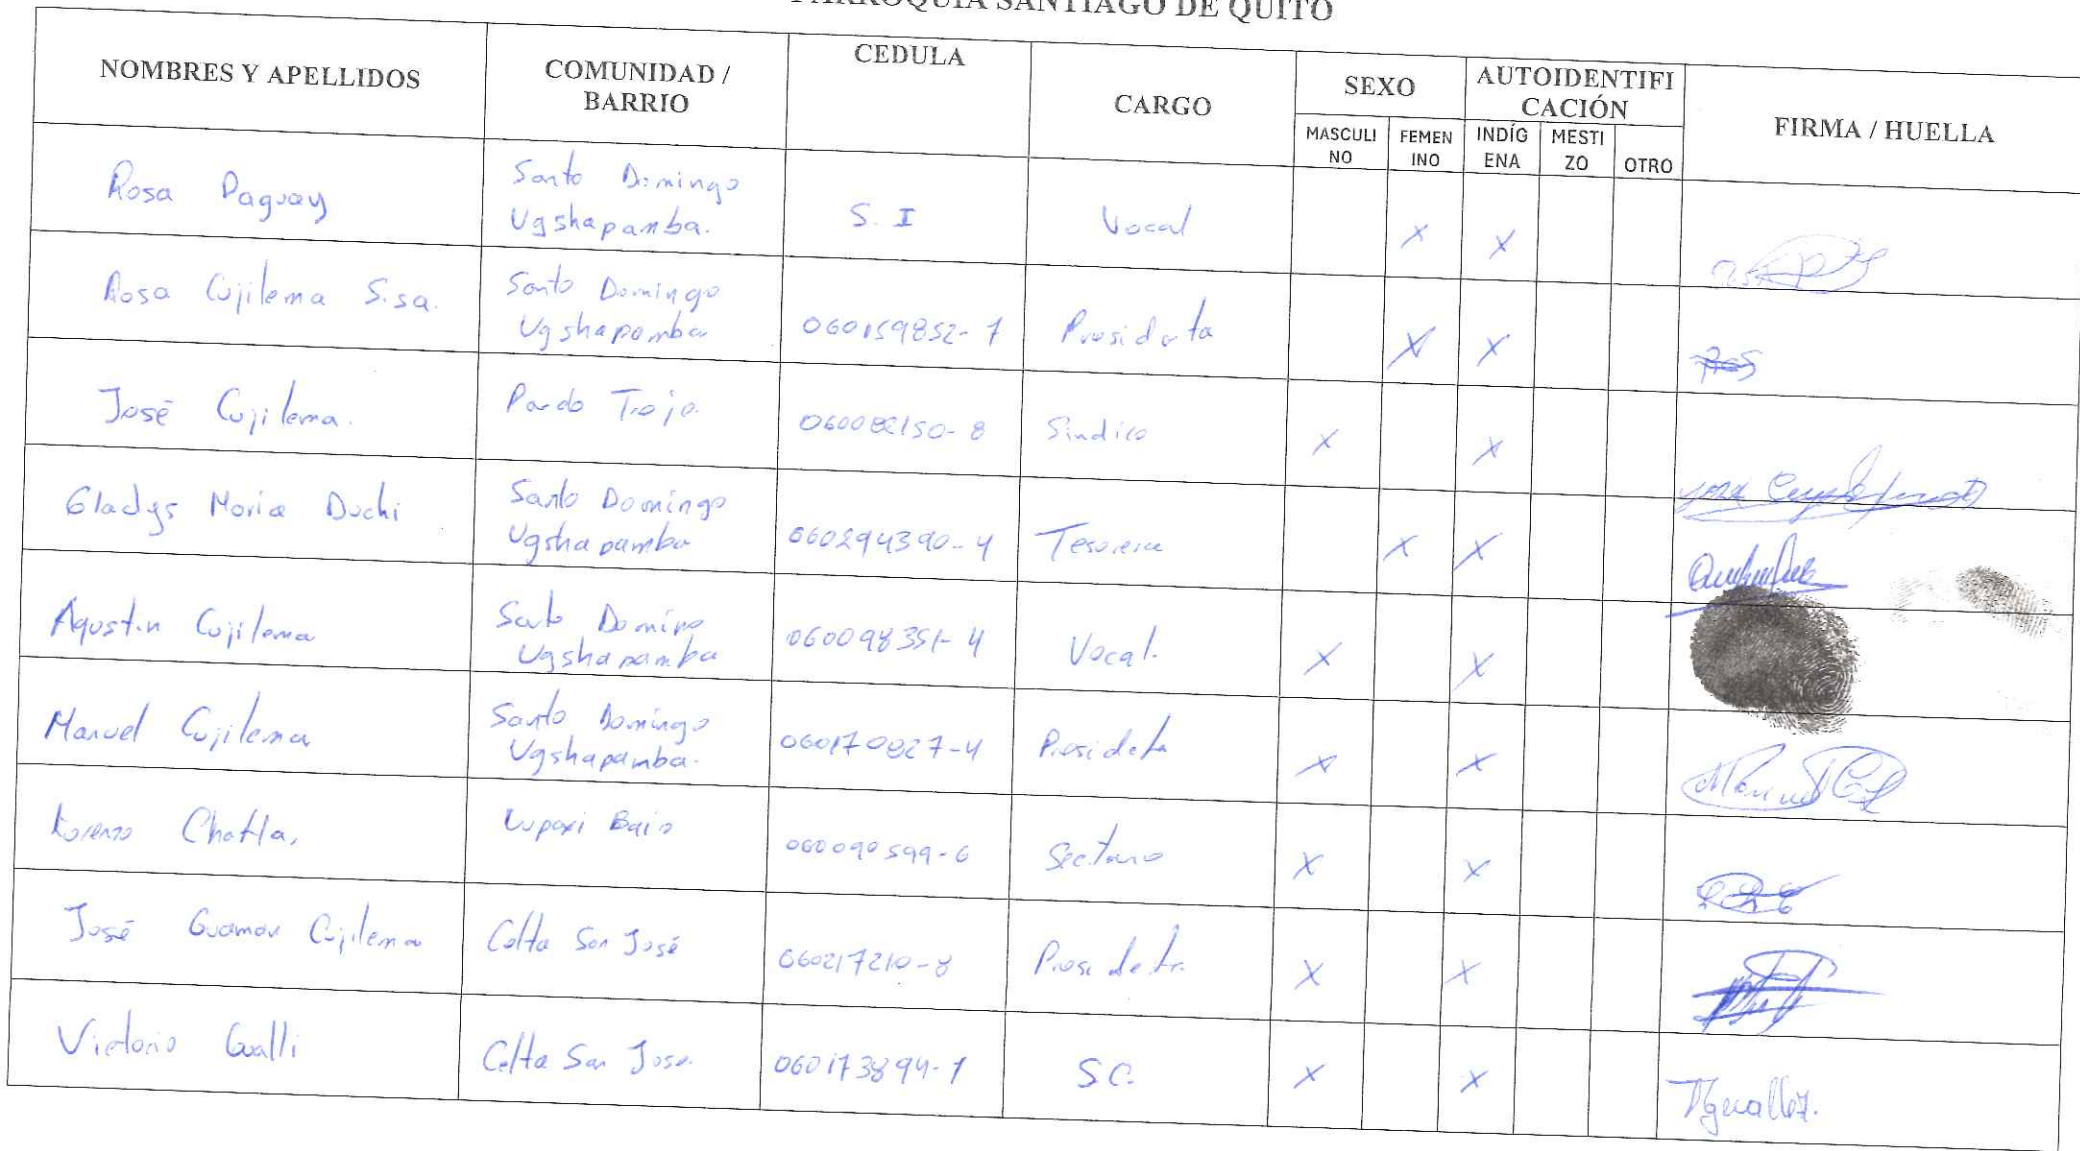 PARROQUIA SANTIAGO DE QUITO
NOMBRES Y APELLIDOS
COMUNIDAD /
BARRIO
CEDULA
CARGO
SEXO
MASCULI
NO
FEMEN
INO
AUTOIDENTIFI
CACIÓN
INDÍG
ENA
MESTI
ZO
OTRO
FIRMA / HUELLA
Rosa Paguay
Santo Domingo
Ugshapamba.
S. I
Vocal
X X
Rosa Cujilema Sisa.
Santo Domingo
Ugshapamba
060159852-7
Presidenta
X X
José Cujilema.
Pardo Troje
060082150-8
Sindico
X X
Gladys Maria Duchi
Santo Domingo
Ugshapamba
060294390-4
Tesorera
X X
Agustin Cujilema
Santo Domingo
Ugshapamba
060098351-4
Vocal.
X X
Manuel Cujilema
Santo Domingo
Ugshapamba.
060170827-4
Presidente
X X
Lorenzo Chafla,
Lupaxi Bajo
060090599-6
Sectario
X X
José Guaman Cujilema
Colta San José
060217210-8
Presidente
X X
Victorio Gualli
Colta San Jose.
060173894-1
S C.
X X